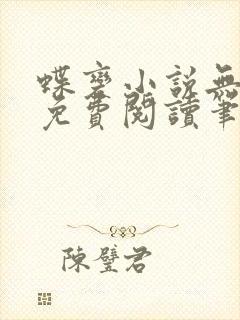 蝶變小說無
免費閱讀筆
陳璧君